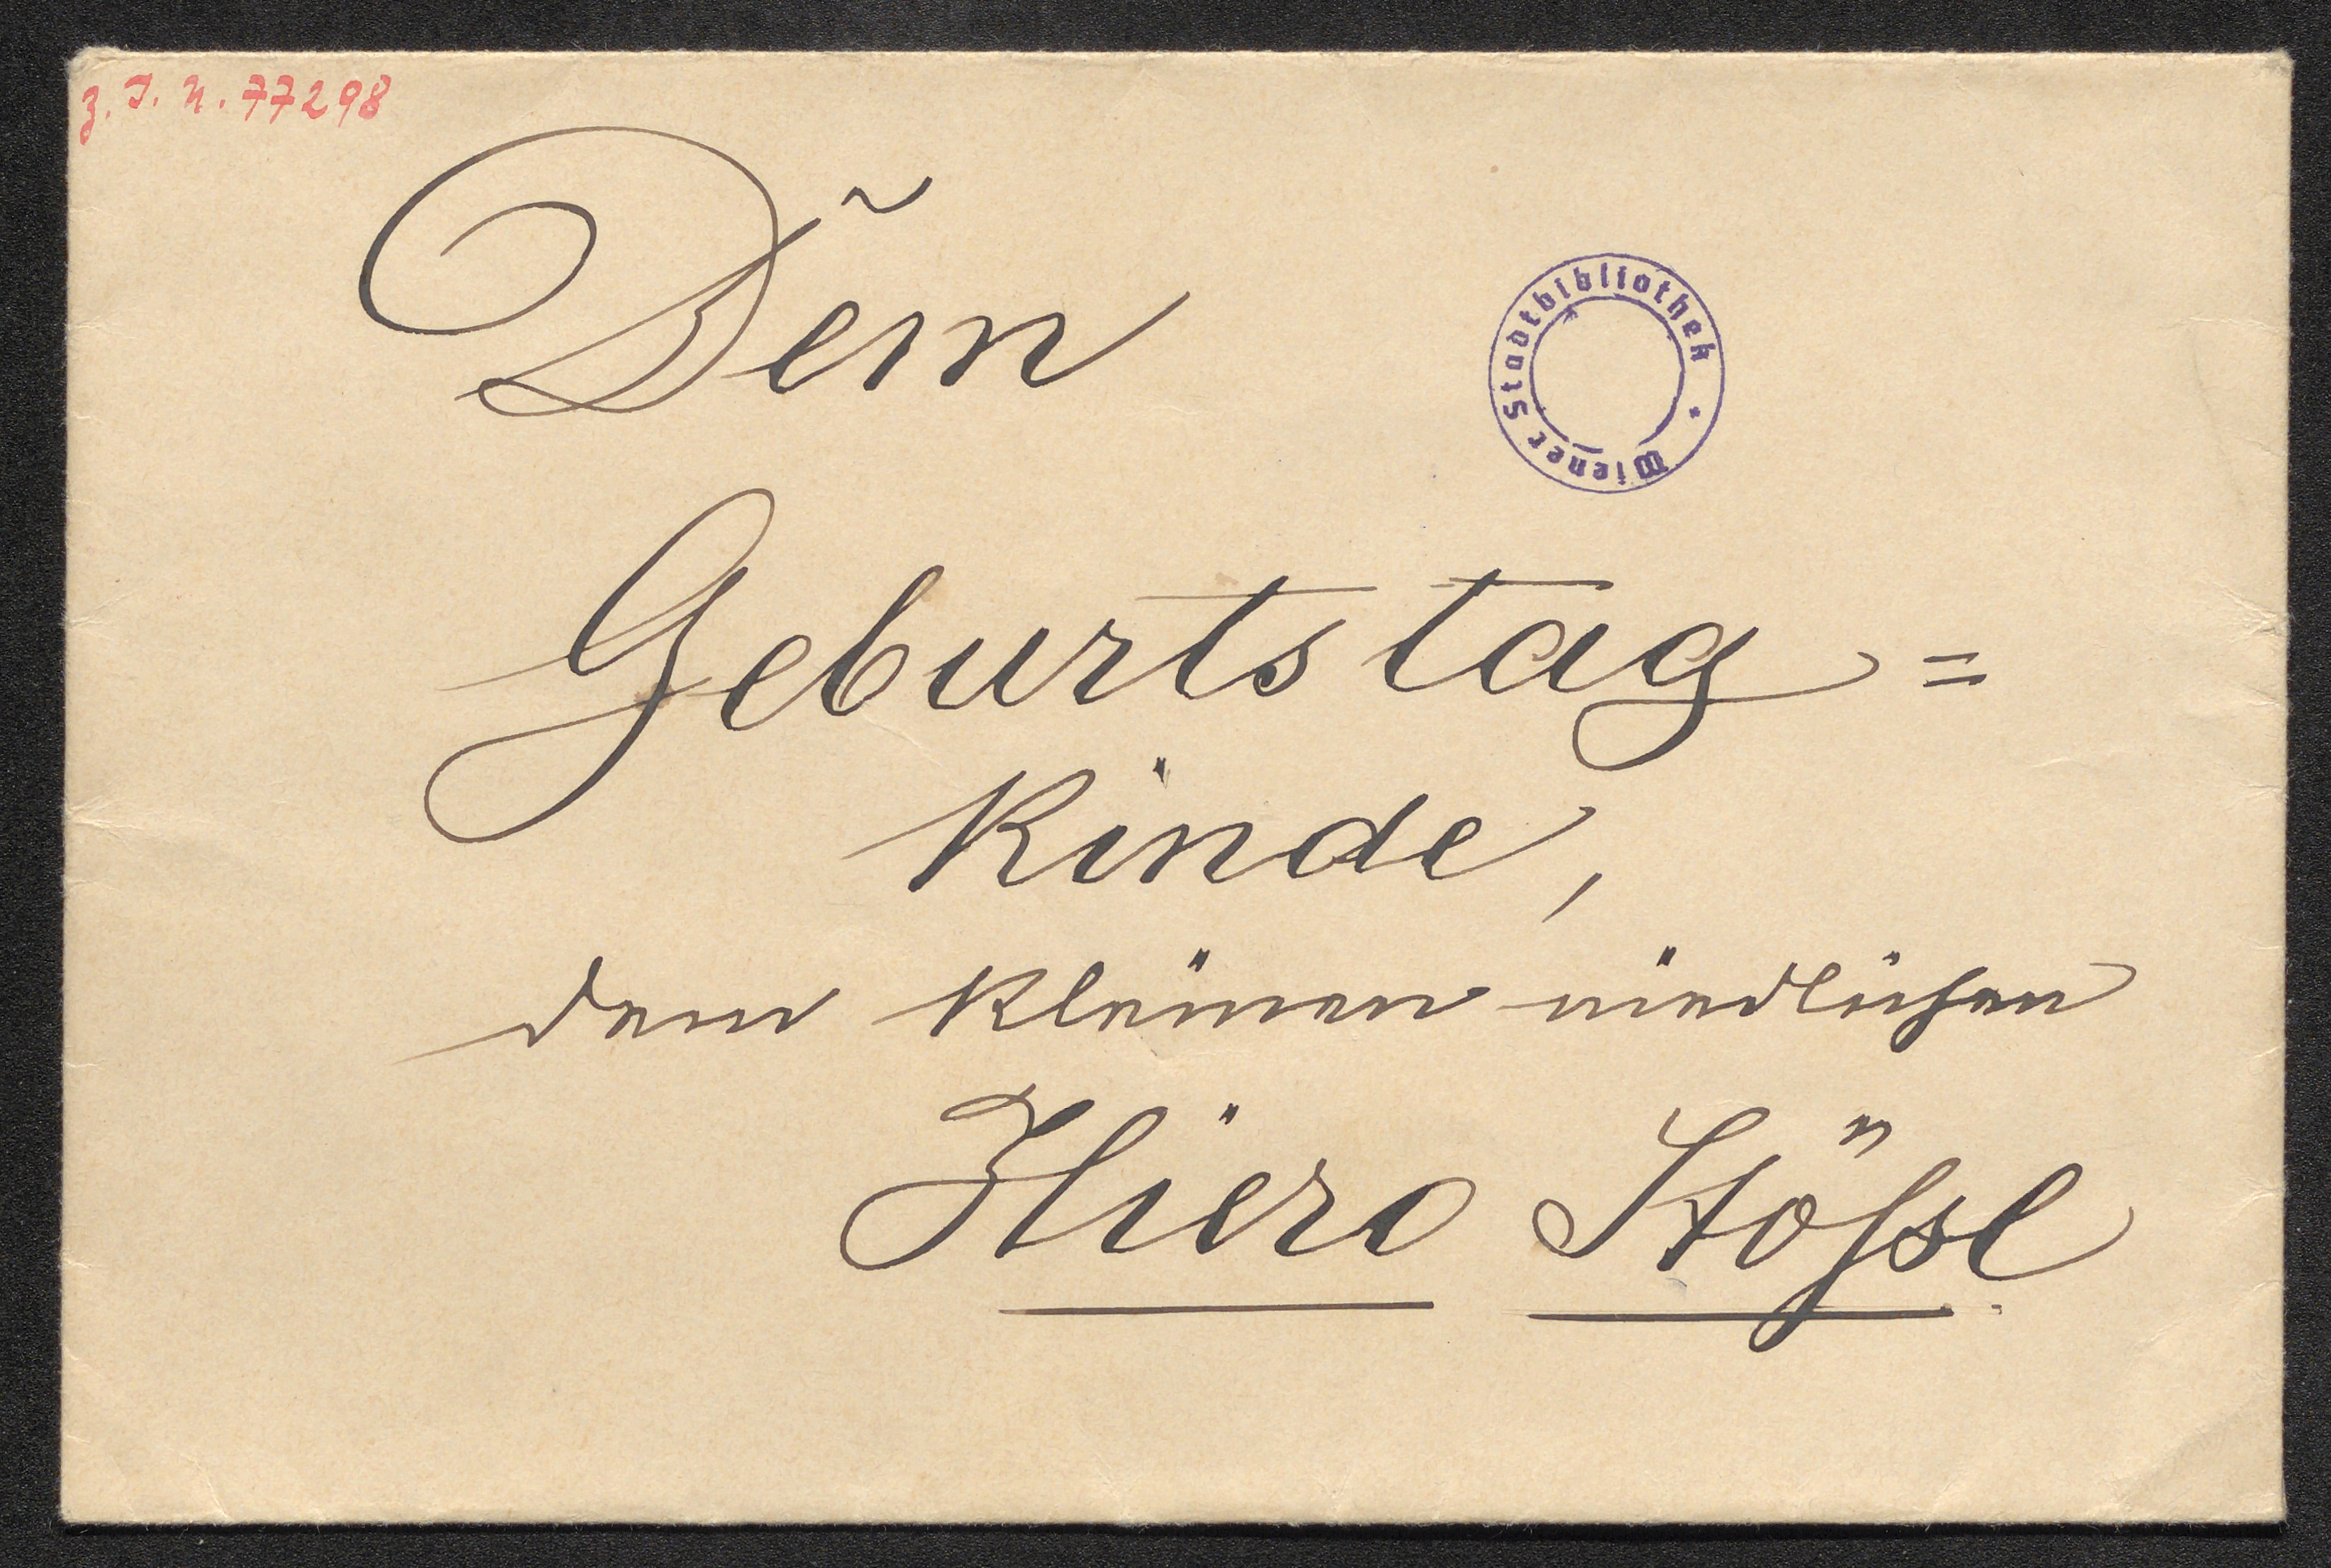 z. I. N. 77298
Dem
Wiener Stadtbibliothek *
Geburtstag=
Kinde,
dem kleinen niedlichen
Hiero Stössl